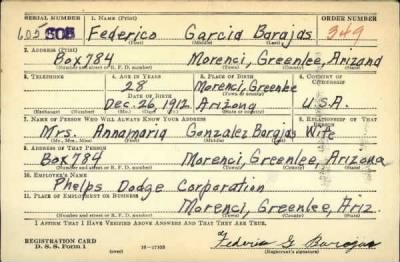 SERIAL NUMBER 1. NAME (Print) ORDER NUMBER
605 Federico Garcia Barajas 349
(First) (Middle) (Last)
2. ADDRESS (Print)
Box 784 Morenci, Greenlee, Arizona
(Number and street or R. F. D. number) (Town) (County) (State)
3. TELEPHONE 4. AGE IN YEARS 5. PLACE OF BIRTH 6. COUNTRY OF CITIZENSHIP
28 Morenci, Greenlee
DATE OF BIRTH (Town or county)
Dec. 26, 1912 Arizona U.S.A.
(Exchange) (Number) (Mo.) (Day) (Yr.) (State or country)
7. NAME OF PERSON WHO WILL ALWAYS KNOW YOUR ADDRESS 8. RELATIONSHIP OF THAT PERSON
Mrs. Annamaria Gonzalez Barajas Wife
(Mr., Mrs., Miss) (First) (Middle) (Last)
9. ADDRESS OF THAT PERSON
Box 784 Morenci, Greenlee, Arizona
(Number and street or R. F. D. number) (Town) (County) (State)
10. EMPLOYER'S NAME
Phelps Dodge Corporation
11. PLACE OF EMPLOYMENT OR BUSINESS
Morenci, Greenlee, Ariz.
(Number and street or R. F. D. number) (Town) (County) (State)
I AFFIRM THAT I HAVE VERIFIED ABOVE ANSWERS AND THAT THEY ARE TRUE.
REGISTRATION CARD
D. S. S. Form 1 (over) 16—17105 Federico G Barajas
(Registrant's signature)